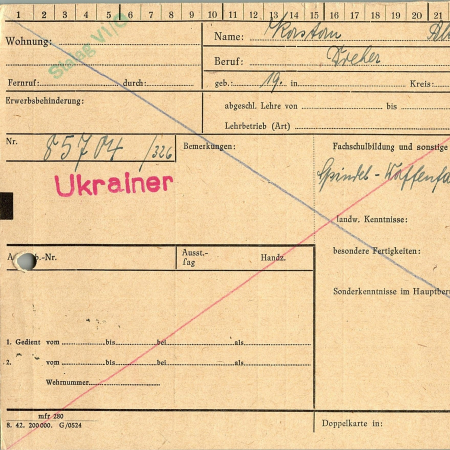 1 2 3 4 5 6 7 8 9 10 11 12 13 14 15 16 17 18 19 20 21
Wohnung:
Stalag VI/C
Name:
Beruf: Dreher
Fernruf: durch:
geb.: 19. in Kreis:
Erwerbsbehinderung:
abgeschl. Lehre von bis
Lehrbetrieb (Art)
Nr. 85704/326
Bemerkungen:
Fachschulbildung und sonstige
Ukrainer
Spindel-
landw. Kenntnisse:
besondere Fertigkeiten:
Sonderkenntnisse im Hauptber
b.-Nr. Ausst.-Tag Handz.
1. Gedient vom bis bei als
2. vom bis bei als
Wehrnummer
mfr 280
8. 42. 200000. G/0524
Doppelkarte in: